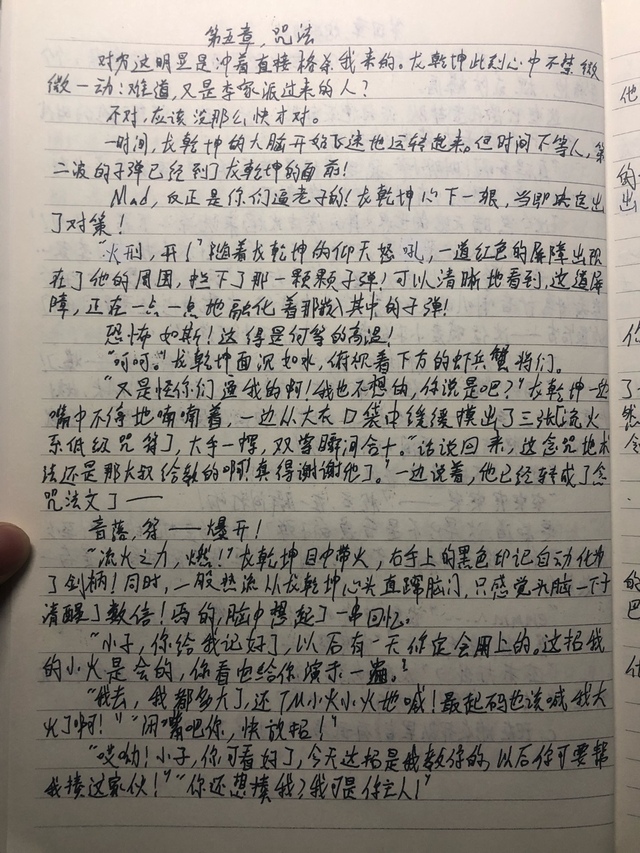 第五章，咒法
对方这明显是冲着直接格杀我来的。龙乾坤此刻心中不禁微
微一动：难道，又是李家派过来的人？
不对，应该没那么快才对。
一时间，龙乾坤的大脑开始飞速地运转起来。但时间不等人，第
二波的子弹已经到了龙乾坤的面前！
Mad，反正是你们逼老子的！龙乾坤心下一狠，当即决定出
了对策！
“火刑，开！”随着龙乾坤的仰天怒吼，一道红色的屏障出现
在了他的周围，拦下了那一颗颗子弹！可以清晰地看到，这道屏
障，正在一点一点地融化着那嵌入其中的子弹！
恐怖如斯！这得是何等的高温！
“呵呵。”龙乾坤面沉如水，俯视着下方的虾兵蟹将们。
“又是怪你们逼我的啊！我也不想的，你说是吧？”龙乾坤一边
嘴中不停地喃喃着，一边从大衣口袋中缓缓摸出了三张[流火
系低级咒符]，大手一挥，双掌瞬间合十。“话说回来，这念咒地术
法还是那大叔给教的啊！真得谢谢他了。”一边说着，他已经转成了念
咒法文了——
音落，符——爆开！
“流火之力，燃！”龙乾坤目中带火，右手上的黑色印记自动化为
了剑柄！同时，一股热流从龙乾坤心头直蹿脑门，只感觉头脑一下子
清醒了数倍！马的，脑中想起了一串回忆。
“小子，你给我记好了，以后有一天你定会用上的。这招我
的小火是会的，你看它给你演示一遍。”
“我去，我都多大了，还TM小火小火地喊！最起码也该喊我大
火了啊！”“闭嘴吧你，快放招！”
“哎呦！小子，你可看好了，今天这招是我教你的，以后你可要帮
我揍这家伙！”“你还想揍我？我可是你主人！”